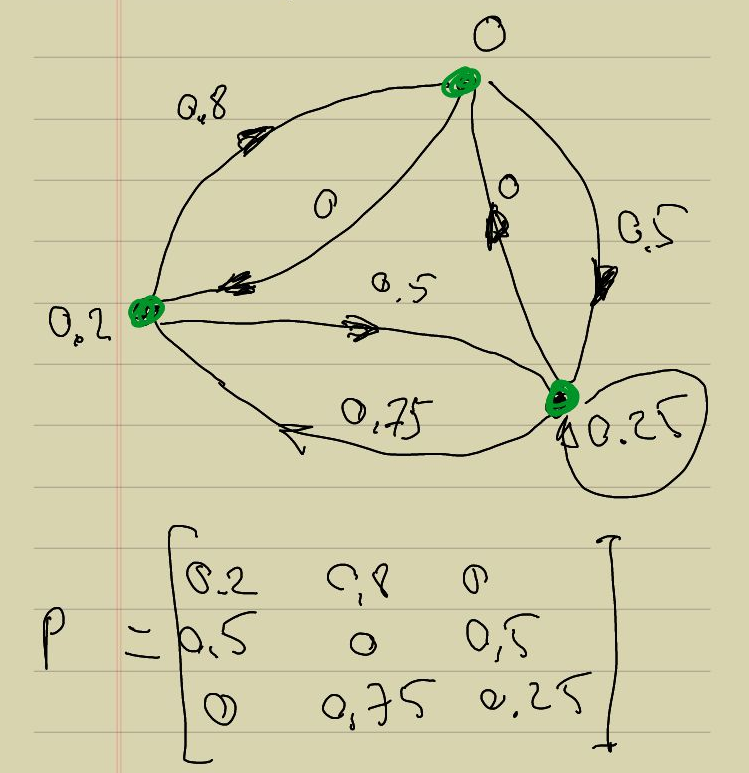 0
0,8
0
0
0,5
0.5
0.2
0,75
0.25
P = [ 0.2 0,8 0
0.5 0 0,5
0 0,75 0.25 ]